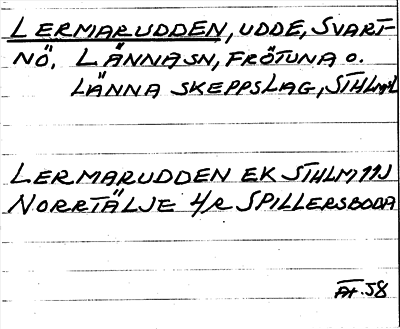 LERMARUDDEN, UDDE, SVART-
NÖ, LÄNNA SN, FRÖTUNA O.
LÄNNA SKEPPSLAG, STHLMS L
LERMARUDDEN EK STHLM 11J
NORRTÄLJE 4/R SPILLERSBODA
ÅT. 58